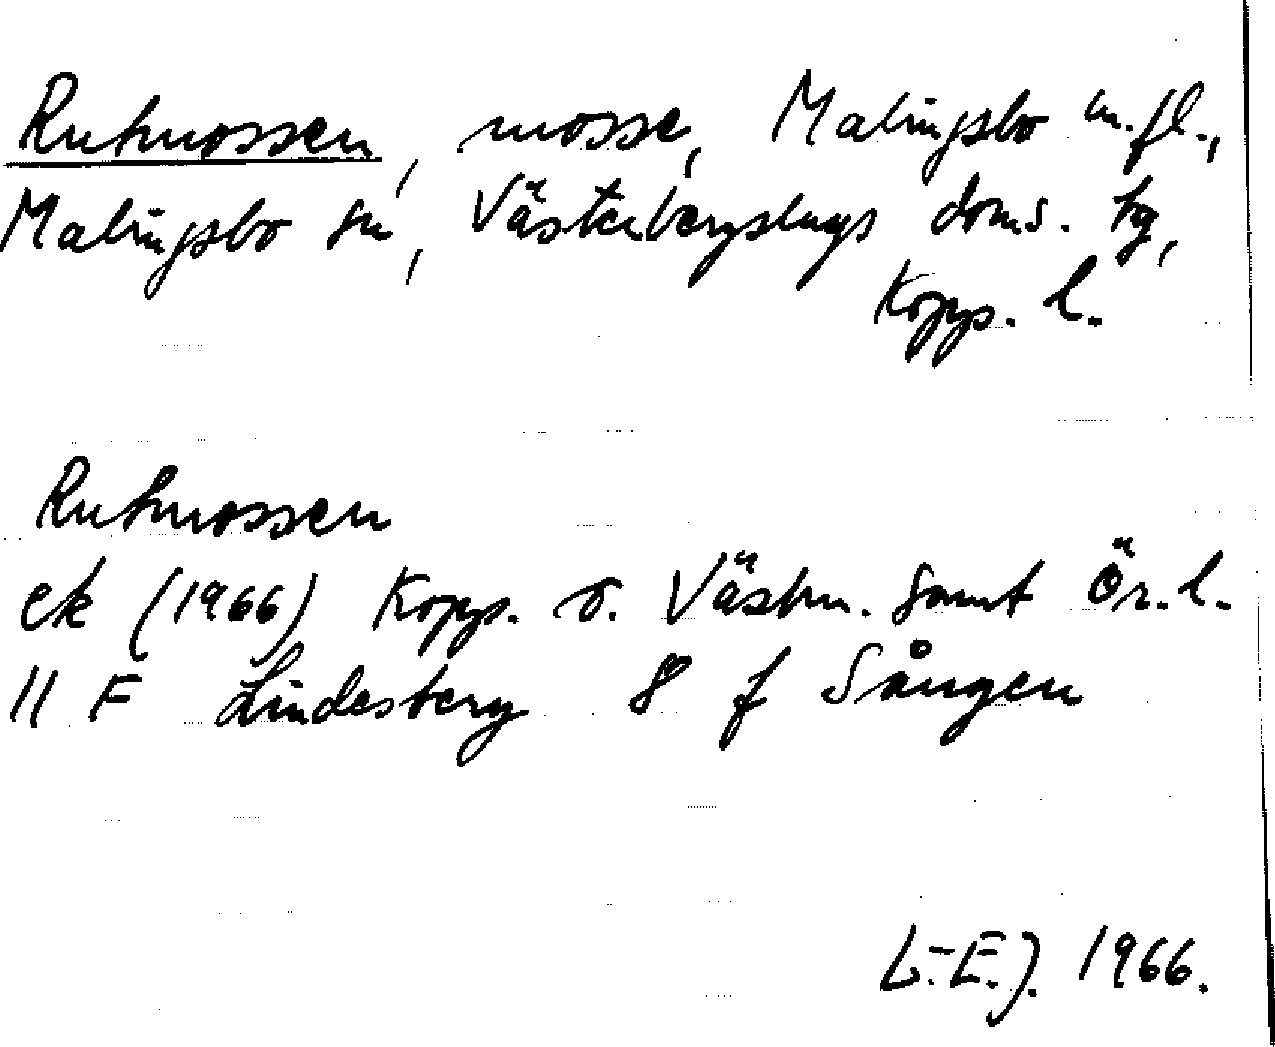 Rutmossen, mosse, Malingsbo m.fl.,
Malingsbo sn, Västerbergslags doms. tg,
Kopp. l.
Rutmossen
ek (1966) Kopp. o. Västm. samt Ör. l.
11 F Lindesberg 8 f Sången
L.-E.J. 1966.